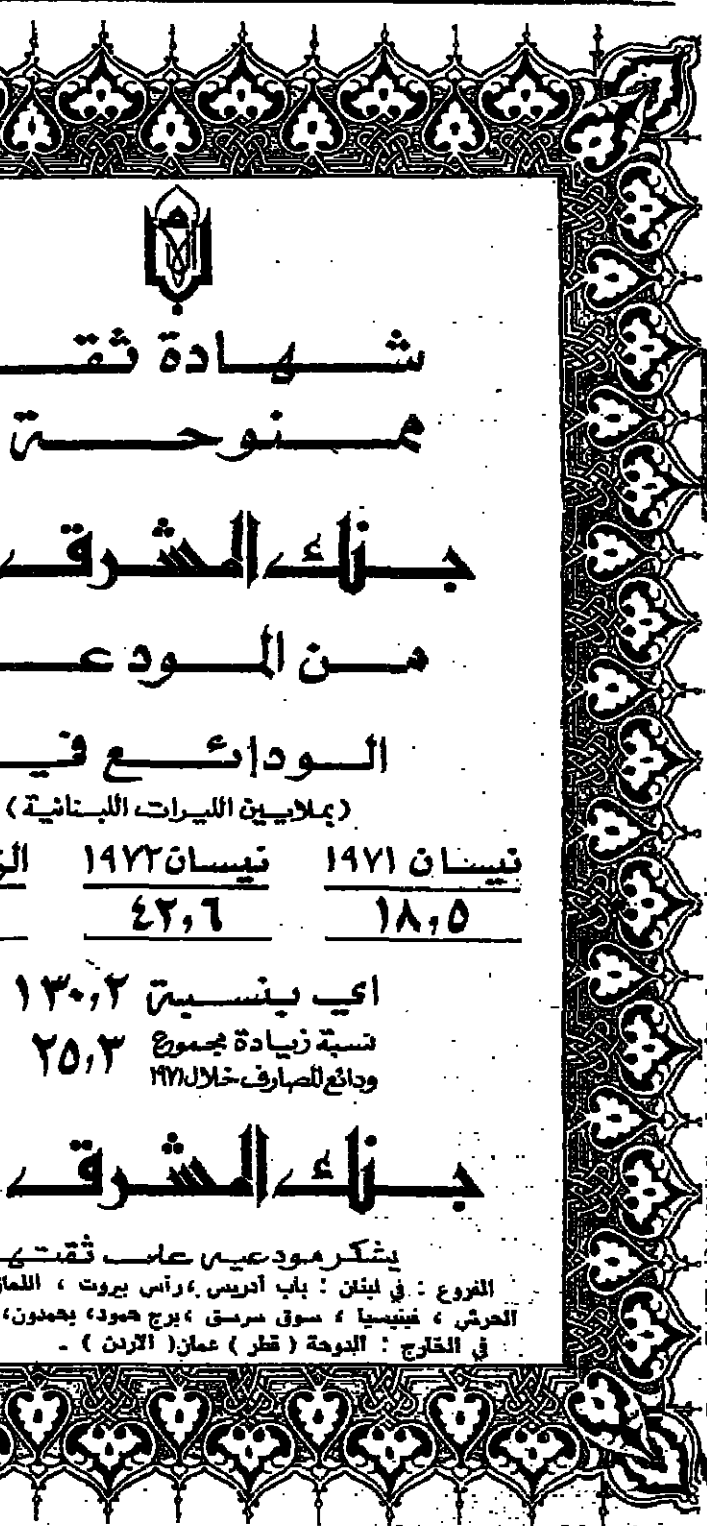 شهادة ثقـ
ممنوحة
بنك المشرق
من المودعـ
الودائع في
(بملايين الليرات اللبنانية)
نيسان ١٩٧١ نيسان ١٩٧٢ الز
١٨,٥ ٤٢,٦
اي بنسبة ١٣٠,٢
نسبة زيادة مجموع ٢٥,٣
ودائع المصارف خلال ١٩٧١
بنك المشرق
يشكر مودعيه على ثقتهـ
الفروع : في لبنان : باب أدريس ، رأس بيروت ، اللعاز
الحرش ، فينيسيا ، سوق سرسق ، برج حمود، بحمدون،
في الخارج : الدوحة ( قطر ) عمان( الاردن ) .